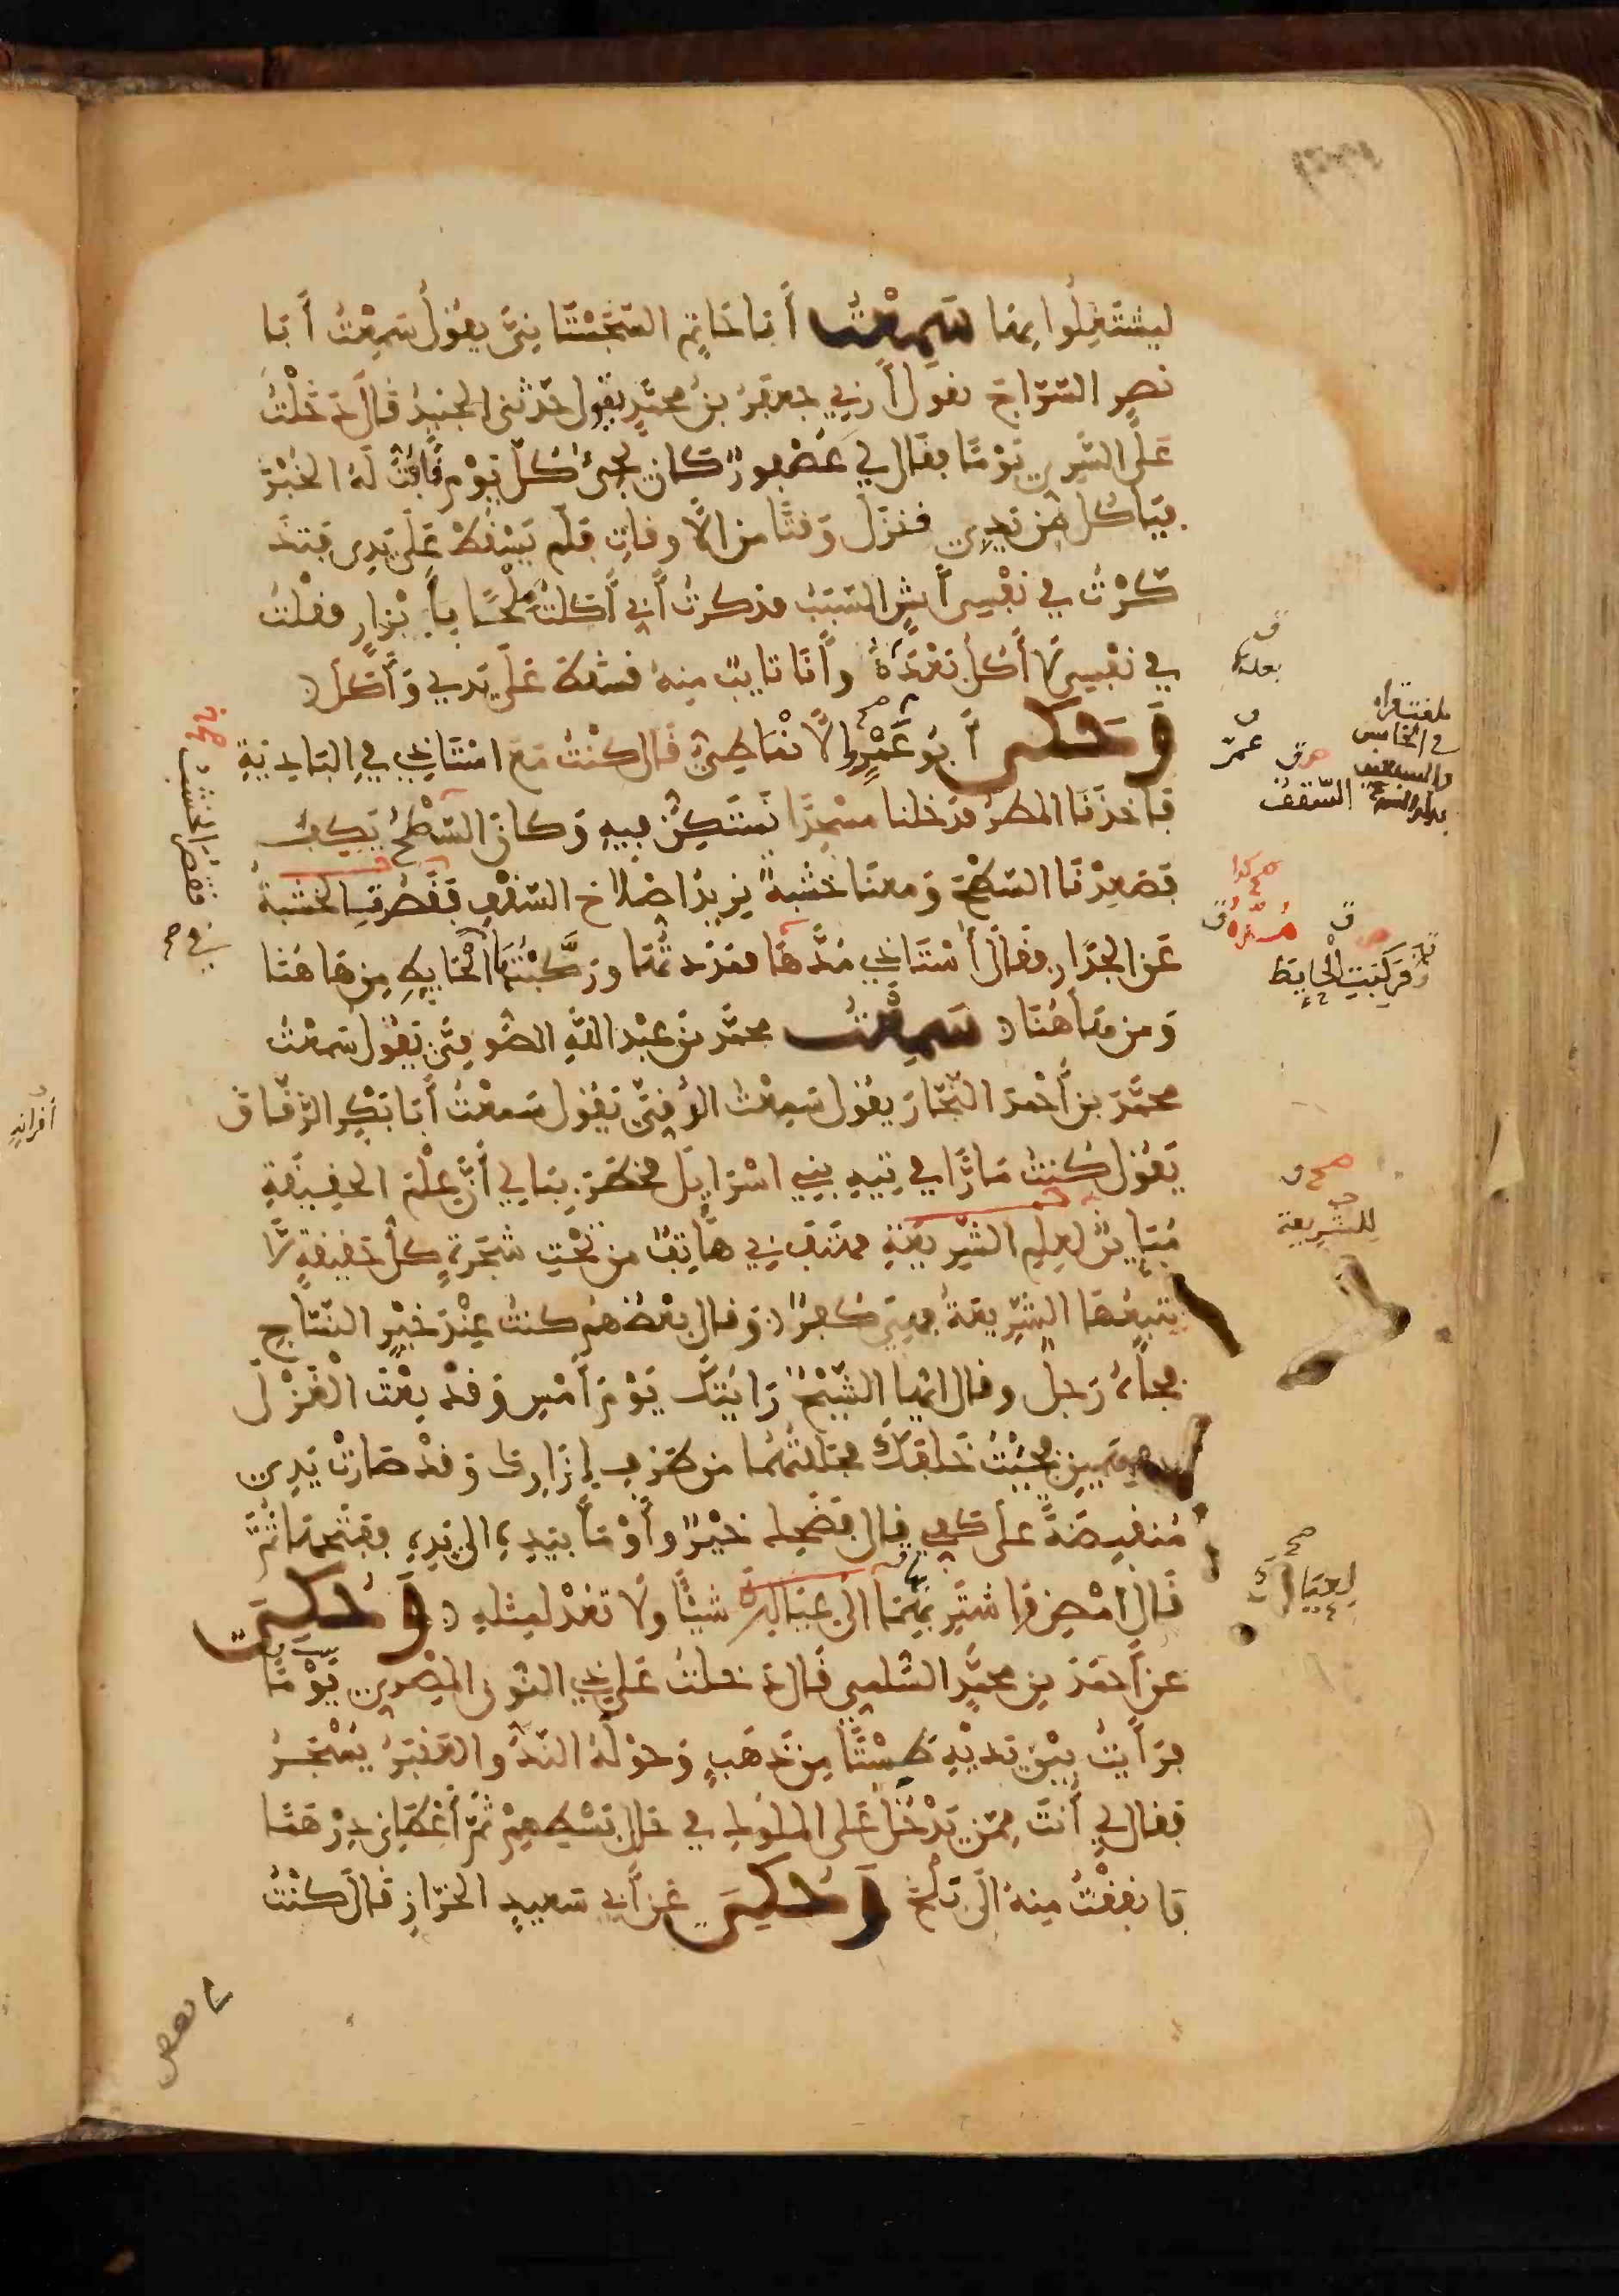 ليشتغلوا بها سَمِعْتُ أبا حاتم السجستاني يقول سمعت أبا
نصر السراج يقول أرني جعفر بن محمد يقول حدثني الجنيد قال دخلت
على السري يوما فقال لي عصفور كان يجيء كل يوم فأفت له الخبز
فيأكل من يدي فنزل وقتا من الأوقات فلم يسقط على يدي فتذ
كرت في نفسي أيش السبب فذكرت أني أكلت ملحا بأبزار فقلت
في نفسي لا أكل بعده وأنا تايب منه فسقط على يدي وأكل
وَحَكى أبو عمرو الأنماطي قال كنت مع استاذي في البادية
فأخذنا المطر فدخلنا مسجدا نستكن فيه وكان السطح يكف
فصعدنا السطح ومعنا خشبة نريد اصلاح السقف فقصرت الخشبة
عن الجدار فقال أستاذي مدها فمددتها وركبتها الحايط من هاهنا
ومن هاهنا سَمِعْتُ محمد بن عبد الله الصوفي يقول سمعت
محمد بن أحمد النجار يقول سمعت الرقي يقول سمعت أبا بكر الدقاق
يقول كنت مارا في تيه بني اسرايل فخطر ببالي أن علم الحقيقة
مباين لعلم الشريعة فهتف بي هاتف من تحت شجرة كل حقيقة لا
يتبعها الشريعة فهي كفر وقال بعضهم كنت عند خير النساج
فجاءه رجل وقال ايها الشيخ رايتك يوم أمس وقد بعت الغزل
بدرهمين فجيت خلفك فحللتهما من طرف إزارك وقد صارت يدي
منقبضة على كفي قال فضحك خير وأومأ بيده الى يدي ففتحها ثم
قال امض فاشتر بهما الى عيالك شيئا ولا تعد لمثله وَحُكِيَ
عن أحمد بن محمد السلمي قال دخلت على ذي النون المصري يوما
فرأيت بين يديه طستا من ذهب وحوله الند والعنبر يسجر
فقال لي أنت ممن يدخل على الملوك في حال بسطهم ثم أعطاني درهما
فانفقت منه الى بلخ وَحُكِيَ عن أبي سعيد الخراز قال كنت
عمر
السقف
وركبت الحايط
للشريعة
لعيالك